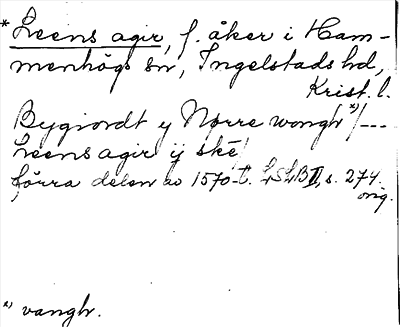 *Leens agir, f. åker i Ham-
menhögs sn, Ingelstads hd,
Krist. l.
Bygiordt y Nørre wongh x)/---
Leens agir ij ske
förra delen av 1570-t. LSLB II, s. 274.
orig.
x) vangh.